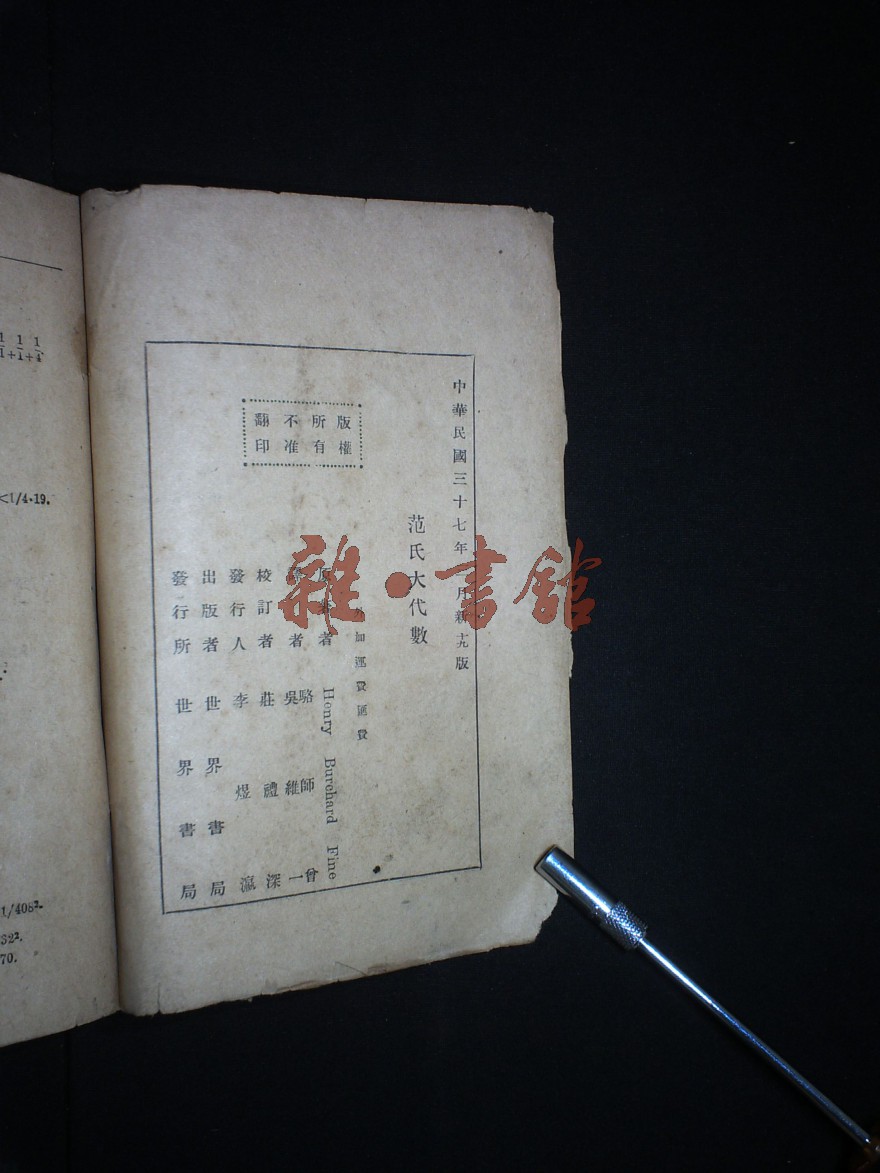 中華民國三十七年 月新十九版
范氏大代數
外 運費匯費
版權
所有
不准
翻印
原 者 Henry Burehard Fine
譯者 駱師曾
吳維一
校訂者 莊禮深
發行人 李煜瀛
出版者 世界書局
發行所 世界書局
雜·書館
<1/4·19.
1/408².
32².
70.